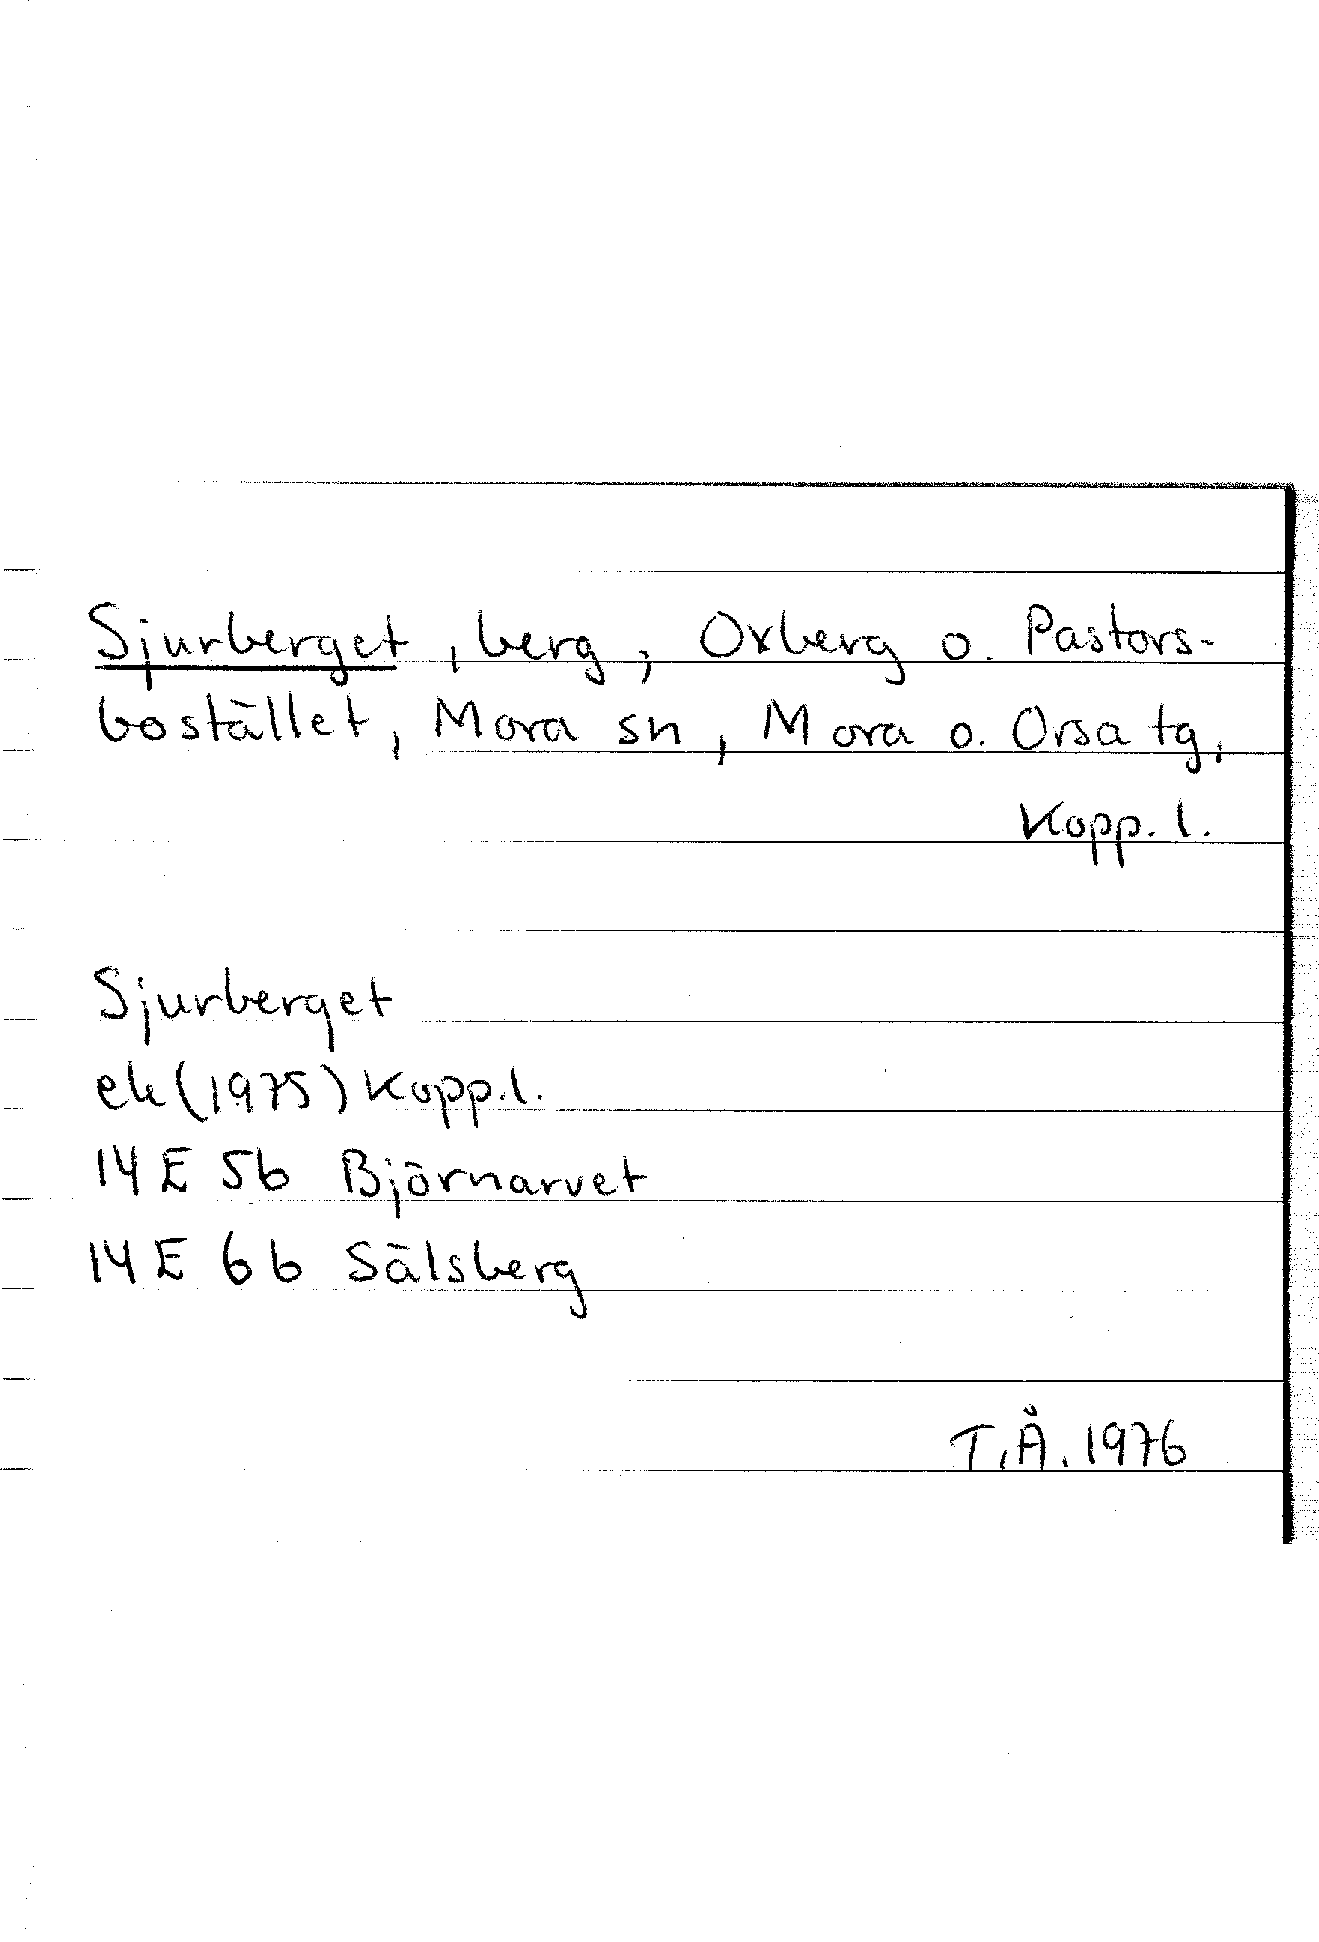 Sjurberget, berg; Oxberg o. Pastors-
bostället, Mora sn, Mora o. Orsa tg,
Kopp. l.
Sjurberget
ek (1975) Kopp. l.
14 E 5b Björnarvet
14 E 6b Sälsberg
T.Å. 1976